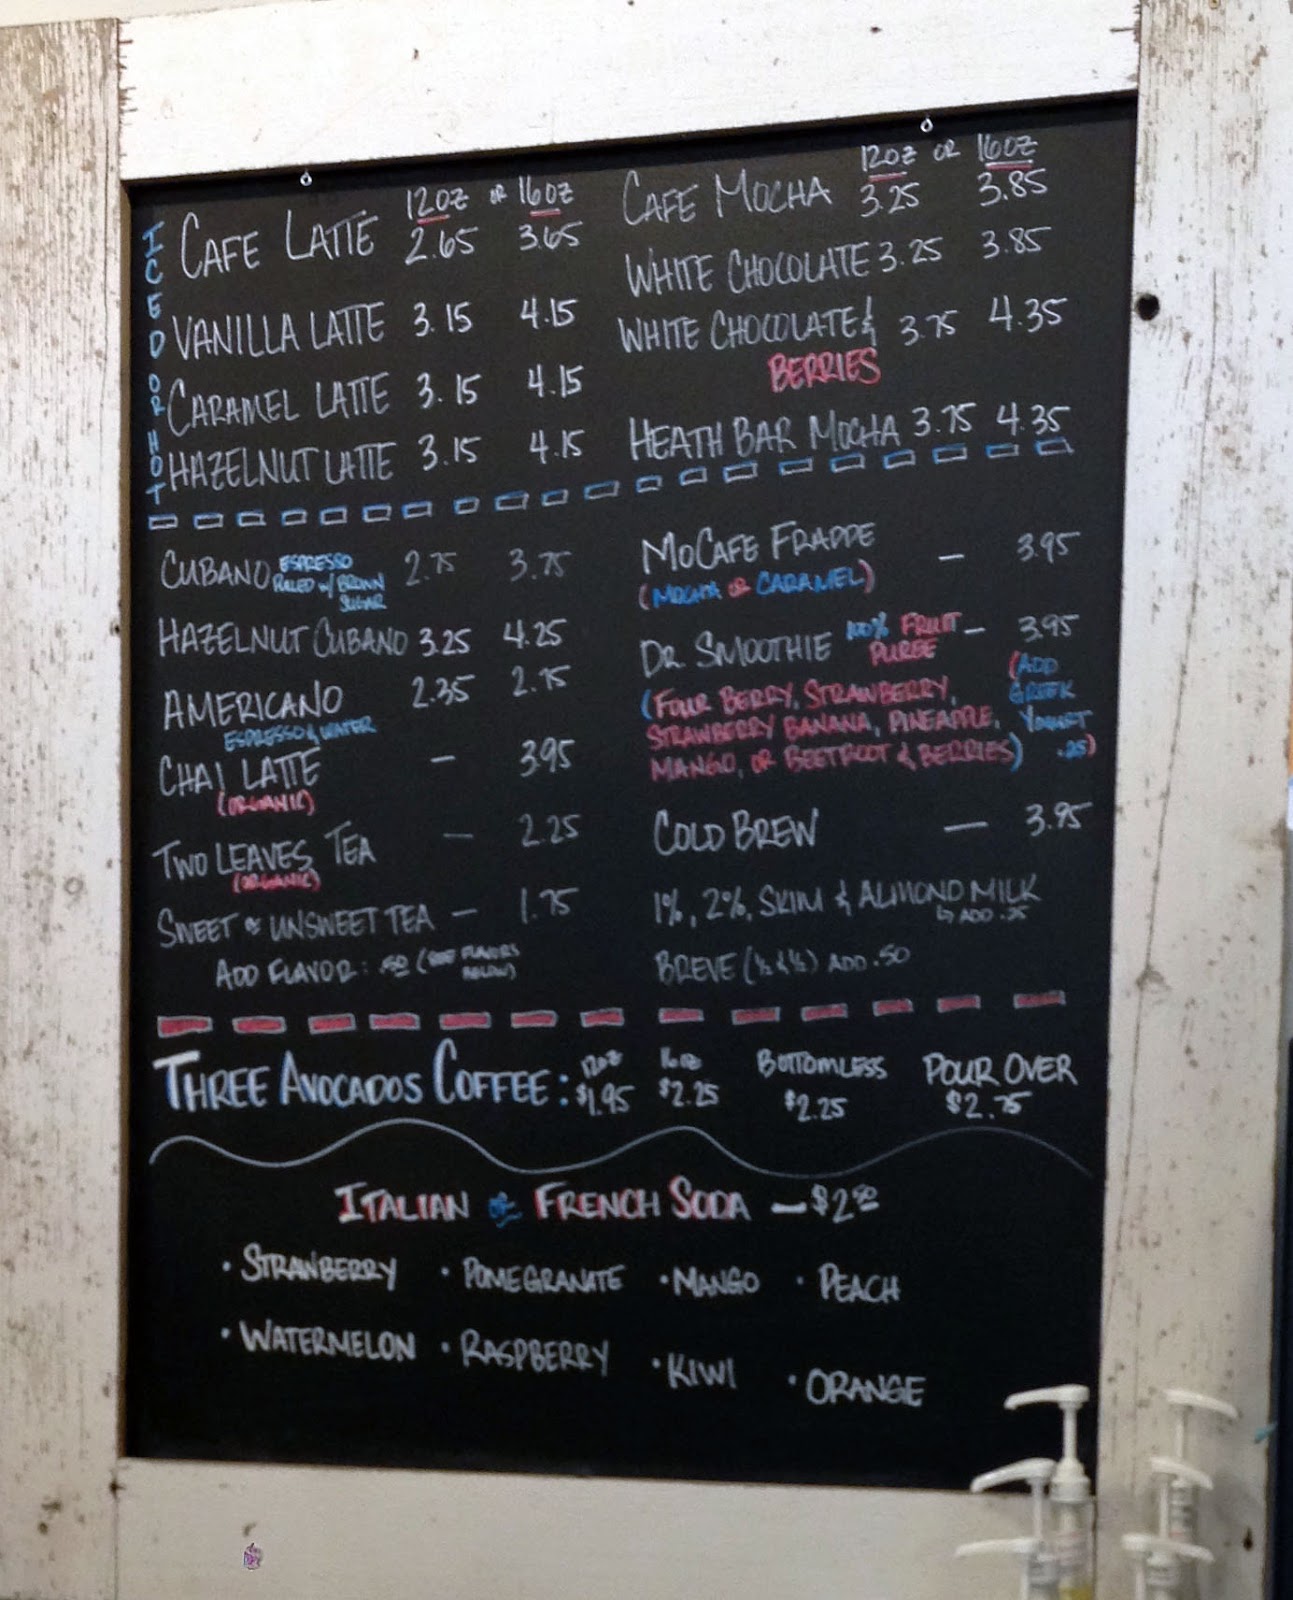 ICED OR HOT
12oz OR 16oz
CAFE LATTE 2.65 3.65
VANILLA LATTE 3.15 4.15
CARAMEL LATTE 3.15 4.15
HAZELNUT LATTE 3.15 4.15
12oz OR 16oz
CAFE MOCHA 3.25 3.85
WHITE CHOCOLATE 3.25 3.85
WHITE CHOCOLATE & 3.75 4.35
BERRIES
HEATH BAR MOCHA 3.75 4.35
CUBANO ESPRESSO 2.75 3.75
PULLED w/ BROWN
SUGAR
HAZELNUT CUBANO 3.25 4.25
AMERICANO 2.35 2.75
ESPRESSO & WATER
CHAI LATTE — 3.95
(ORGANIC)
TWO LEAVES TEA — 2.25
(ORGANIC)
SWEET or UNSWEET TEA — 1.75
ADD FLAVOR: .50 (SEE FLAVORS
BELOW)
MOCAFE FRAPPE — 3.95
(MOCHA OR CARAMEL)
DR. SMOOTHIE 100% FRUIT — 3.95
PUREE
(FOUR BERRY, STRAWBERRY,
STRAWBERRY BANANA, PINEAPPLE,
MANGO, OR BEETROOT & BERRIES)
(ADD
GREEK
YOGURT
.25)
COLD BREW — 3.95
1%, 2%, SKIM & ALMOND MILK
↳ ADD .25
BREVE (½ & ½) ADD .50
THREE AVOCADOS COFFEE: 12oz $1.95 16oz $2.25 BOTTOMLESS $2.25 POUR OVER $2.75
ITALIAN or FRENCH SODA — $2.50
• STRAWBERRY • POMEGRANATE • MANGO • PEACH
• WATERMELON • RASPBERRY • KIWI • ORANGE